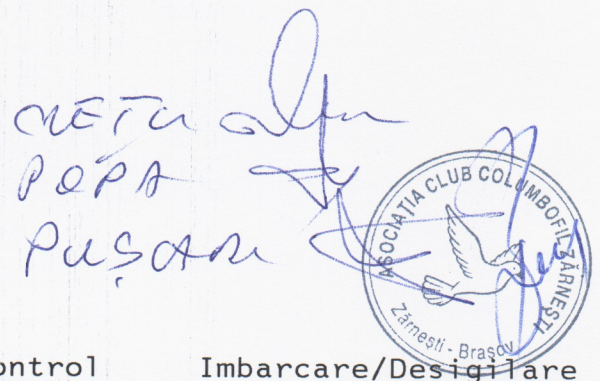 CREȚU
POPA
PUȘCARU
ASOCIAȚIA CLUB COLUMBOFIL ZĂRNEȘTI
Zărnești - Brașov
ontrol Imbarcare/Desigilare